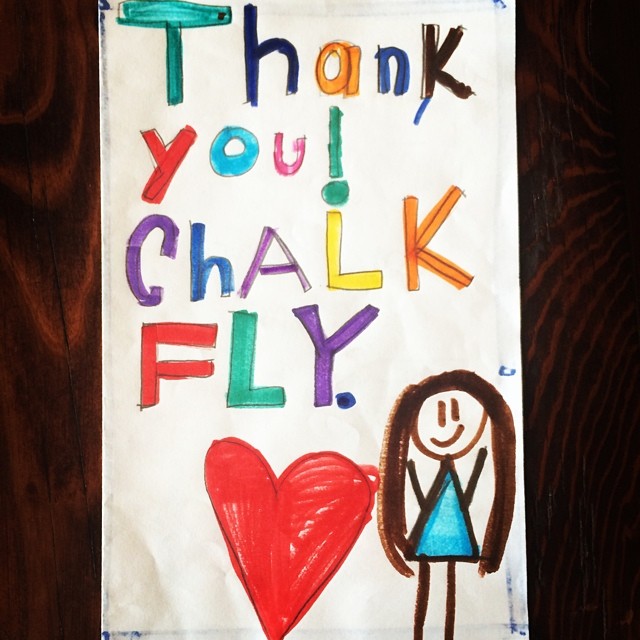 Thank
you!
ChALK
FLY.